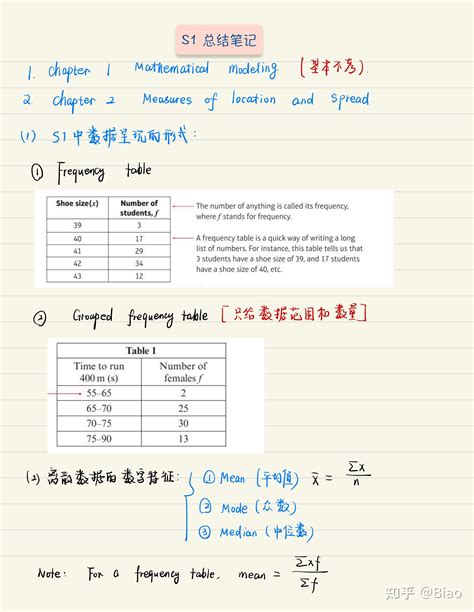 S1 总结笔记
1. Chapter 1 Mathematical modeling (基本不考).
2 Chapter 2 Measures of location and spread
(1) S1中数据呈现的形式:
① Frequency table
Shoe size(x) Number of students, f
39 3
40 17
41 29
42 34
43 12
The number of anything is called its frequency,
where f stands for frequency.
A frequency table is a quick way of writing a long
list of numbers. For instance, this table tells us that
3 students have a shoe size of 39, and 17 students
have a shoe size of 40, etc.
② Grouped frequency table [只给数据范围和数量]
Table 1
Time to run 400 m (s) Number of females f
55–65 2
65–70 25
70–75 30
75–90 13
(2) 离散数据的数字特征: ① Mean (平均值) x̄ = Σx/n
② Mode (众数)
③ Median (中位数)
Note: For a frequency table, mean = Σxf/Σf
知乎 @Biao